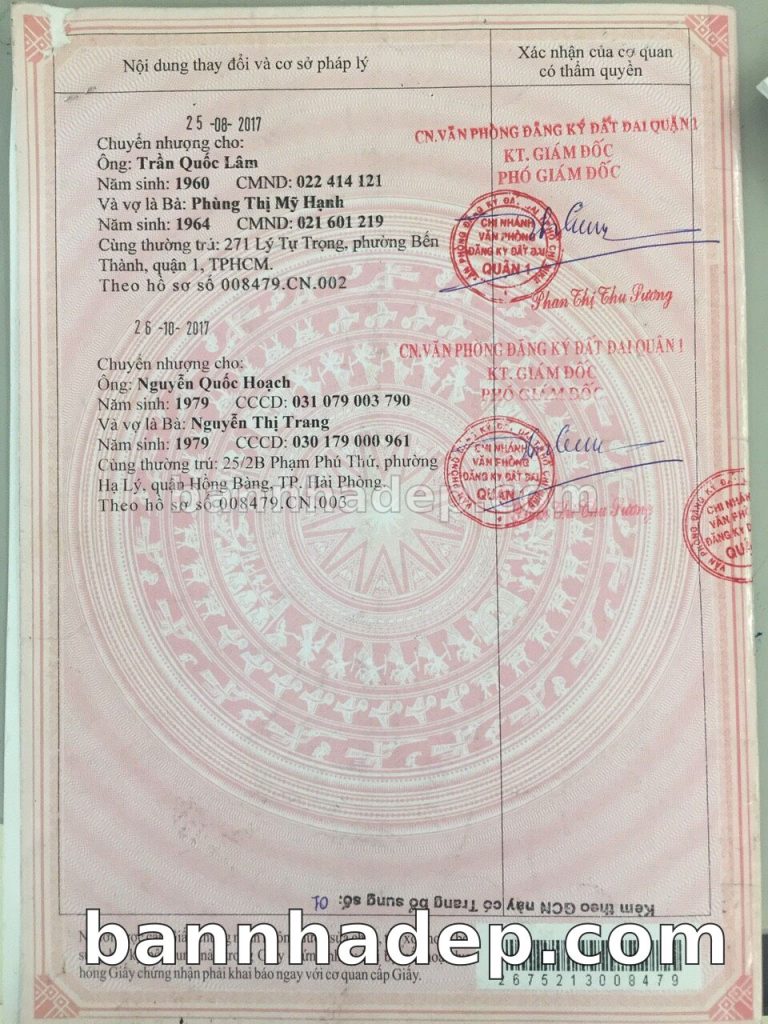 Nội dung thay đổi và cơ sở pháp lý
Xác nhận của cơ quan
có thẩm quyền
25-08-2017
Chuyển nhượng cho:
Ông: Trần Quốc Lâm
Năm sinh: 1960 CMND: 022 414 121
Và vợ là Bà: Phùng Thị Mỹ Hạnh
Năm sinh: 1964 CMND: 021 601 219
Cùng thường trả: 271 Lý Tự Trọng, phường Bến
Thành, quận 1, TPHCM.
Theo hồ sơ số 008479.CN.002
CN.VĂN PHÒNG ĐĂNG KÝ ĐẤT ĐAI QUẬN 1
KT. GIÁM ĐỐC
PHÓ GIÁM ĐỐC
CHI NHÁNH
VĂN PHÒNG
ĐĂNG KÝ ĐẤT ĐAI
QUẬN 1
Phan Thị Thu Sương
26-10-2017
Chuyển nhượng cho:
Ông: Nguyễn Quốc Hoạch
Năm sinh: 1979 CCCD: 031 079 003 790
Và vợ là Bà: Nguyễn Thị Trang
Năm sinh: 1979 CCCD: 030 179 000 961
Cùng thường trú: 25/2B Phạm Phú Thứ, phường
Hạ Lý, quận Hồng Bàng, TP. Hải Phòng.
Theo hồ sơ số 008479.CN.003
CN.VĂN PHÒNG ĐĂNG KÝ ĐẤT ĐAI QUẬN 1
KT. GIÁM ĐỐC
PHÓ GIÁM ĐỐC
CHI NHÁNH
VĂN PHÒNG
ĐĂNG KÝ ĐẤT ĐAI
QUẬN
Thu Sương
CHI NHÁNH
VĂN PHÒ
ĐĂNG KÝ Đ
QUẬ
bannhadep.com
Kèm theo GCN này có Trang bổ sung số: 01
bannhadep.com
hỏng Giấy chứng nhận phải khai báo ngay với cơ quan cấp Giấy.
2675213008479